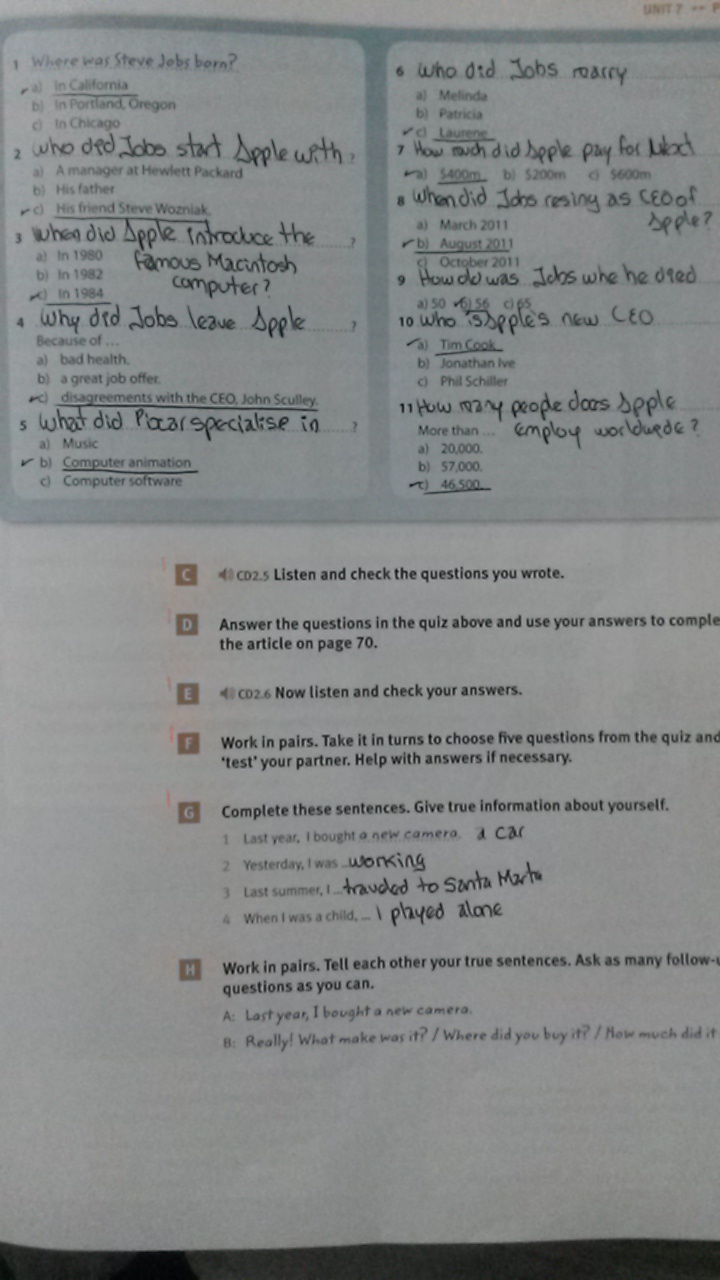 UNIT 7 -- P
1 Where was Steve Jobs born?
a) In California
b) In Portland, Oregon
c) In Chicago
2 who did Jobs start Apple with ?
a) A manager at Hewlett Packard
b) His father
c) His friend Steve Wozniak.
3 when did Apple introduce the ?
famous Macintosh
computer?
a) In 1980
b) In 1982
c) In 1984
4 Why did Jobs leave Apple ?
Because of ...
a) bad health.
b) a great job offer.
c) disagreements with the CEO, John Sculley.
5 What did Pixar specialise in ?
a) Music
b) Computer animation
c) Computer software
6 who did Jobs marry
a) Melinda
b) Patricia
c) Laurene
7 How much did Apple pay for Next
a) $400m b) $200m c) $600m
8 When did Jobs resing as CEO of
Apple?
a) March 2011
b) August 2011
c) October 2011
9 How old was Jobs whe he died
a) 50 b) 56 c) 65
10 who is Apple's new CEO
a) Tim Cook
b) Jonathan Ive
c) Phil Schiller
11 How many people does Apple
employ worldwede?
More than ...
a) 20,000.
b) 57,000.
c) 46,500.
C CD2.5 Listen and check the questions you wrote.
D Answer the questions in the quiz above and use your answers to comple
the article on page 70.
E CD2.6 Now listen and check your answers.
F Work in pairs. Take it in turns to choose five questions from the quiz and
'test' your partner. Help with answers if necessary.
G Complete these sentences. Give true information about yourself.
1 Last year, I bought a new camera. a car
2 Yesterday, I was ... working
3 Last summer, I ... traveled to Santa Marta
4 When I was a child, ... I played alone
H Work in pairs. Tell each other your true sentences. Ask as many follow-u
questions as you can.
A: Last year, I bought a new camera.
B: Really! What make was it? / Where did you buy it? / How much did it